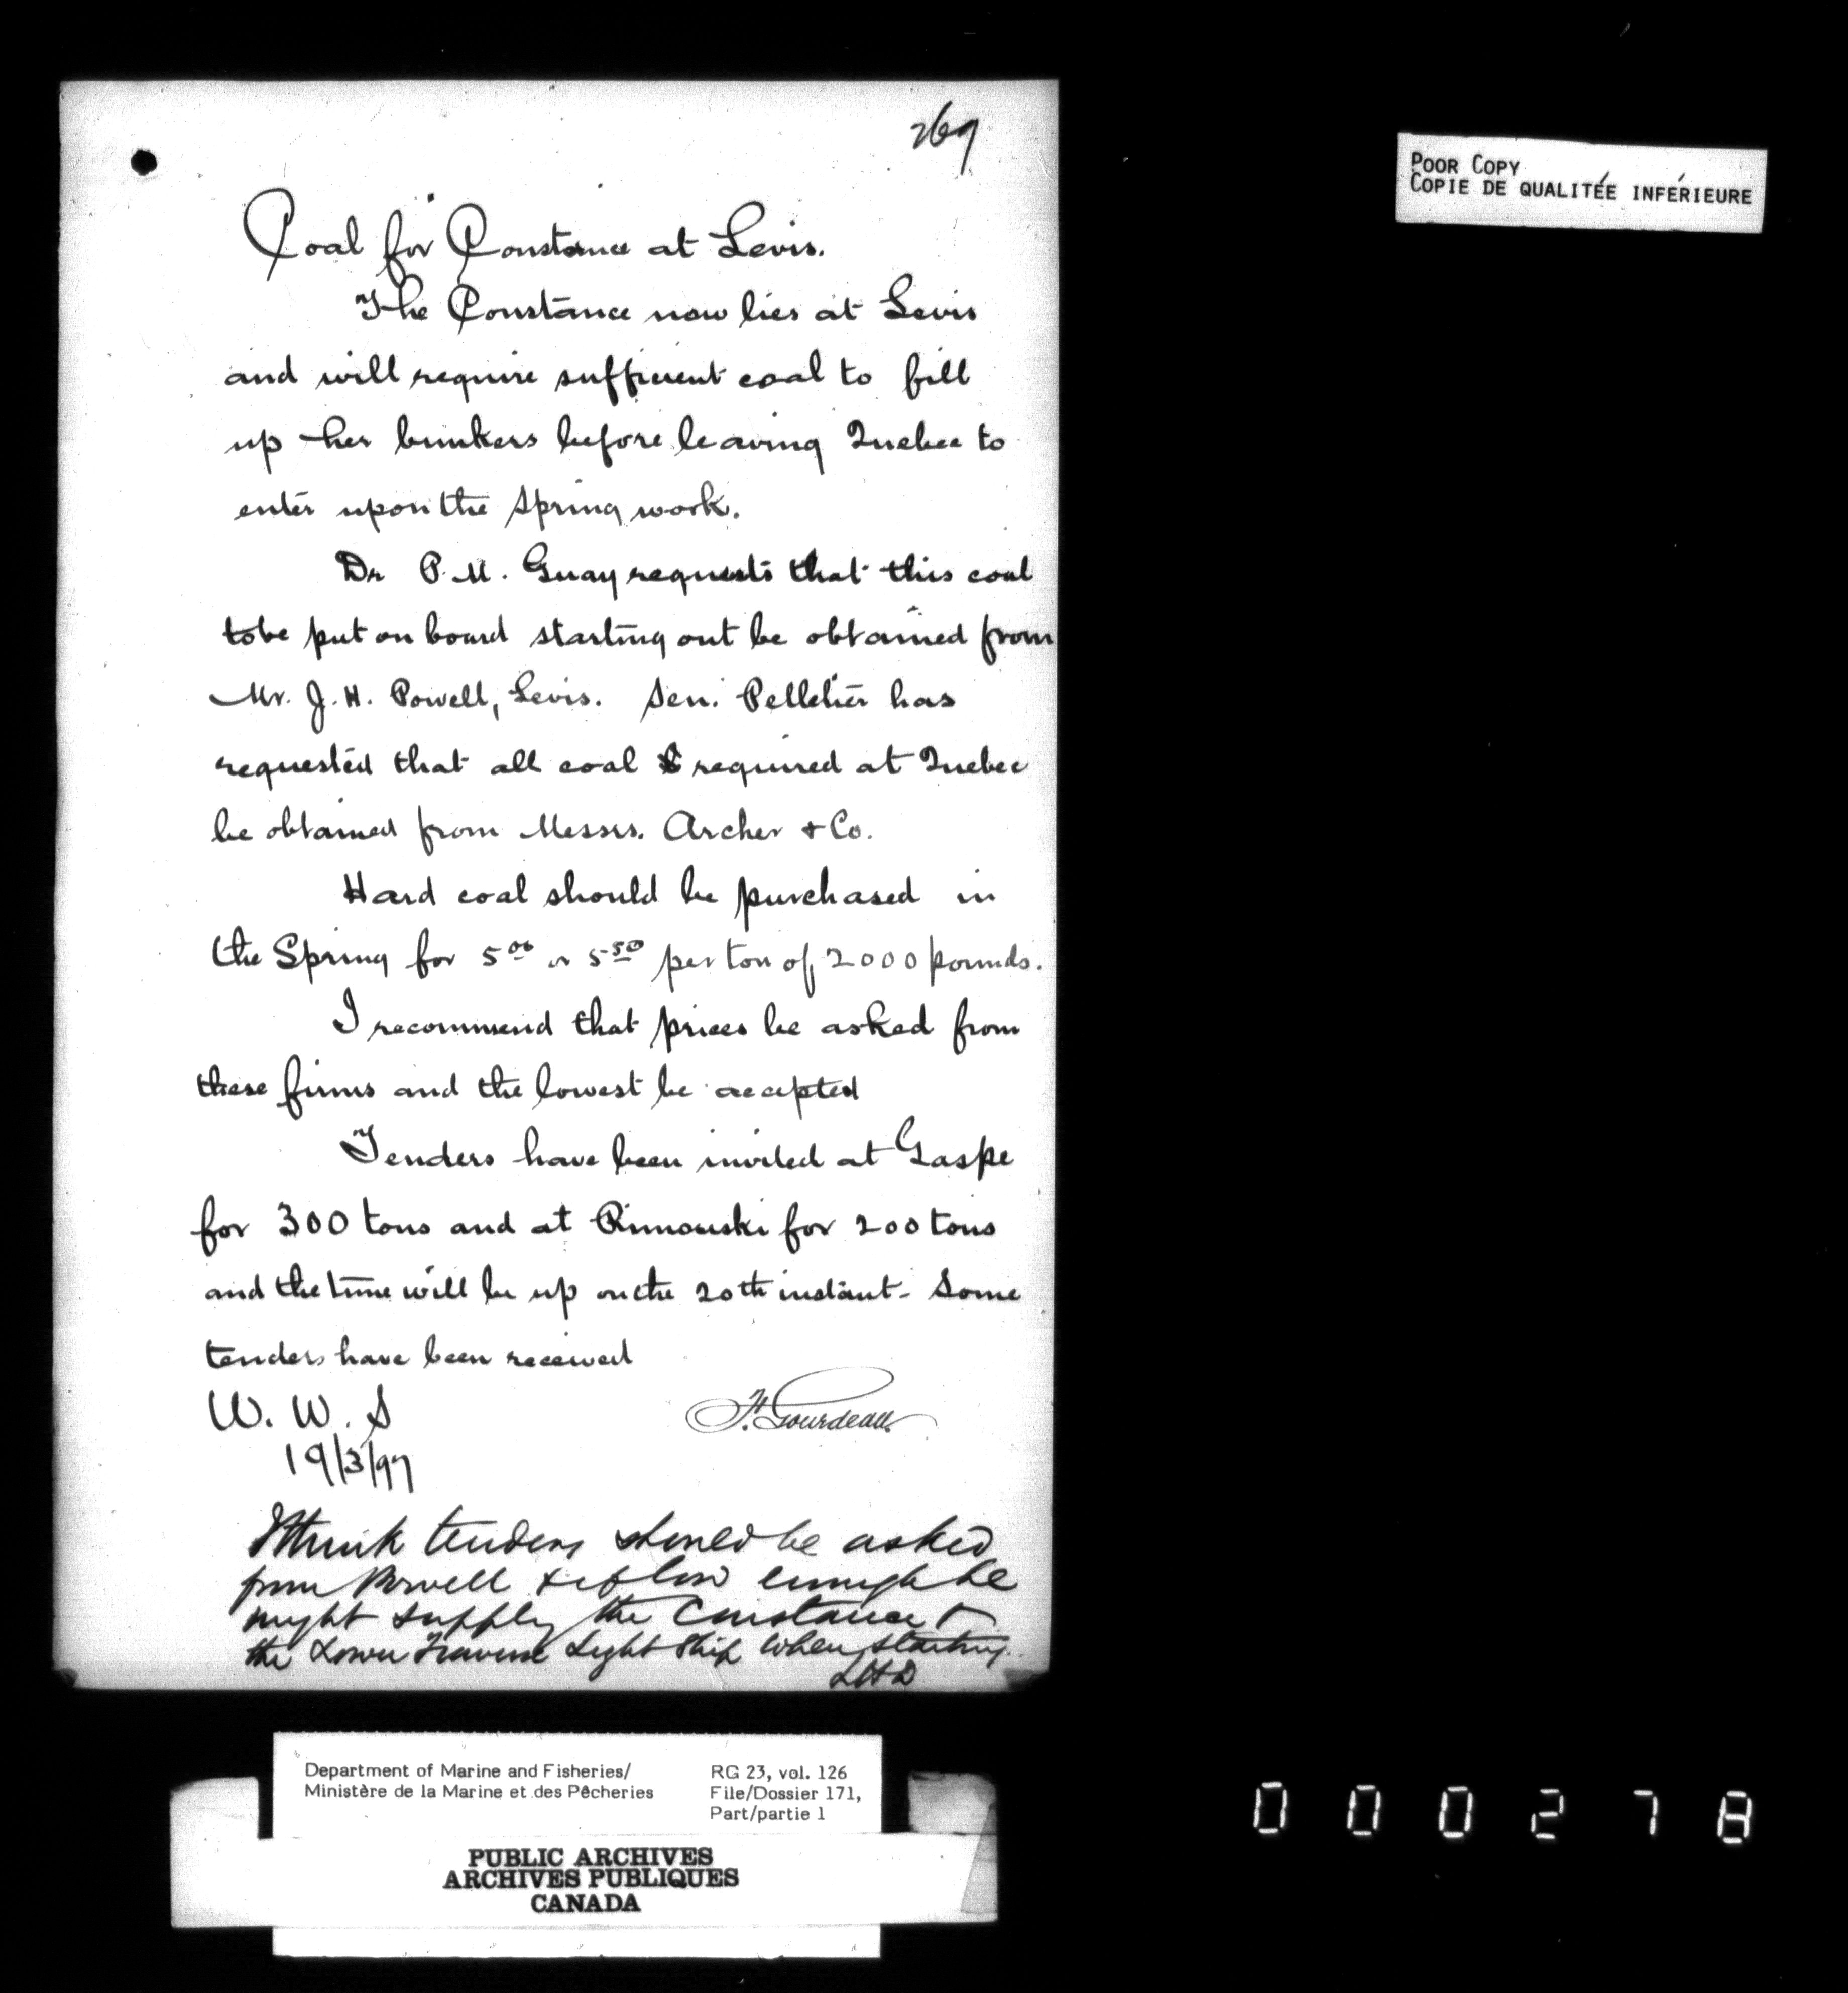 269
POOR COPY
COPIE DE QUALITÉE INFÉRIEURE
Coal for Constance at Levis.
The Constance now lies at Levis
and will require sufficient coal to fill
up her bunkers before leaving Quebec to
enter upon the Spring work.
Dr P. M. Guay requests that this coal
to be put on board starting out be obtained from
Mr. J. H. Powell, Levis. Sen. Pelletier has
requested that all coal required at Quebec
be obtained from Messrs. Archer & Co.
Hard coal should be purchased in
the Spring for 5 00 or 5 50 per ton of 2000 pounds.
I recommend that prices be asked from
these firms and the lowest be accepted
Tenders have been invited at Gaspe
for 300 tons and at Rimouski for 200 tons
and the time will be up on the 20th instant - Some
tenders have been received
W. W. S
F. Gourdeau
19/3/97
I think tenders should be asked
from Powell & if low enough he
might supply the Constance &
the Lower Traverse Light Ship when starting.
LHD
Department of Marine and Fisheries/
Ministère de la Marine et des Pêcheries
RG 23, vol. 126
File/Dossier 171,
Part/partie 1
PUBLIC ARCHIVES
ARCHIVES PUBLIQUES
CANADA
000278